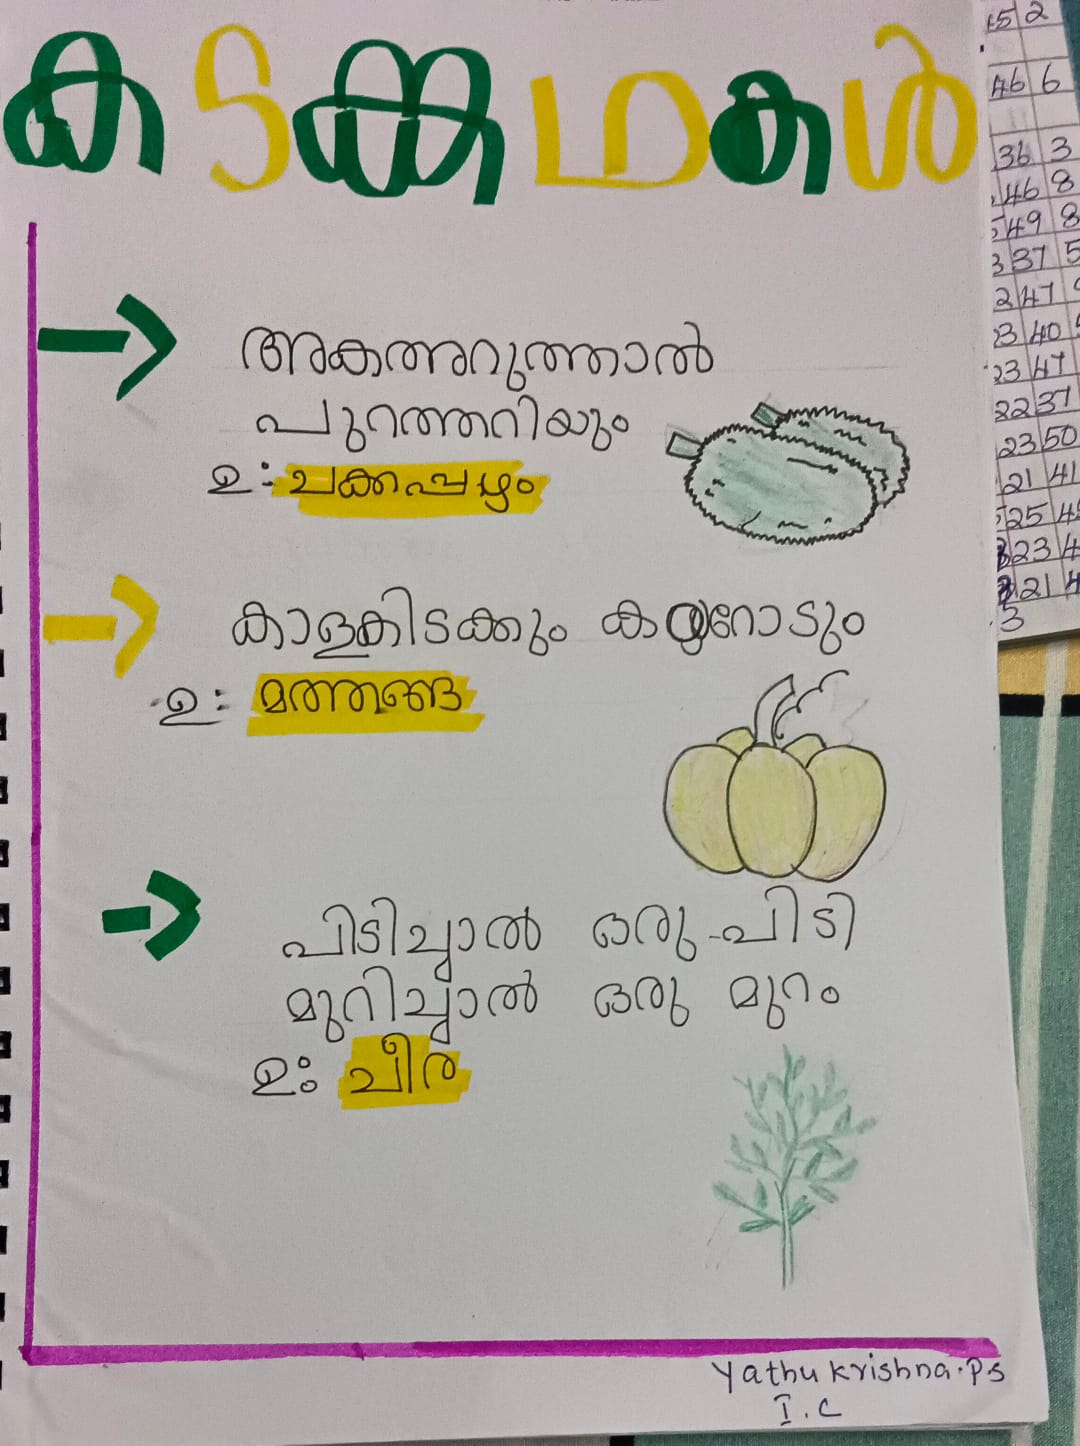 കടങ്കഥകൾ
അകത്തറുത്താൽ
പുറത്തറിയും
ഉ:- ചക്കപ്പഴം
കാളകിടക്കും കയറോടും
ഉ: മത്തങ്ങ
പിടിച്ചാൽ ഒരു പിടി
മുറിച്ചാൽ ഒരു മുറം
ഉ: ചീര
Yathu Krishna.PS
I.C
45 2
46 6
36 3
46 8
49 8
37 5
47
40
23 47
22 37
23 50
21 41
25
23 4
21 4
3